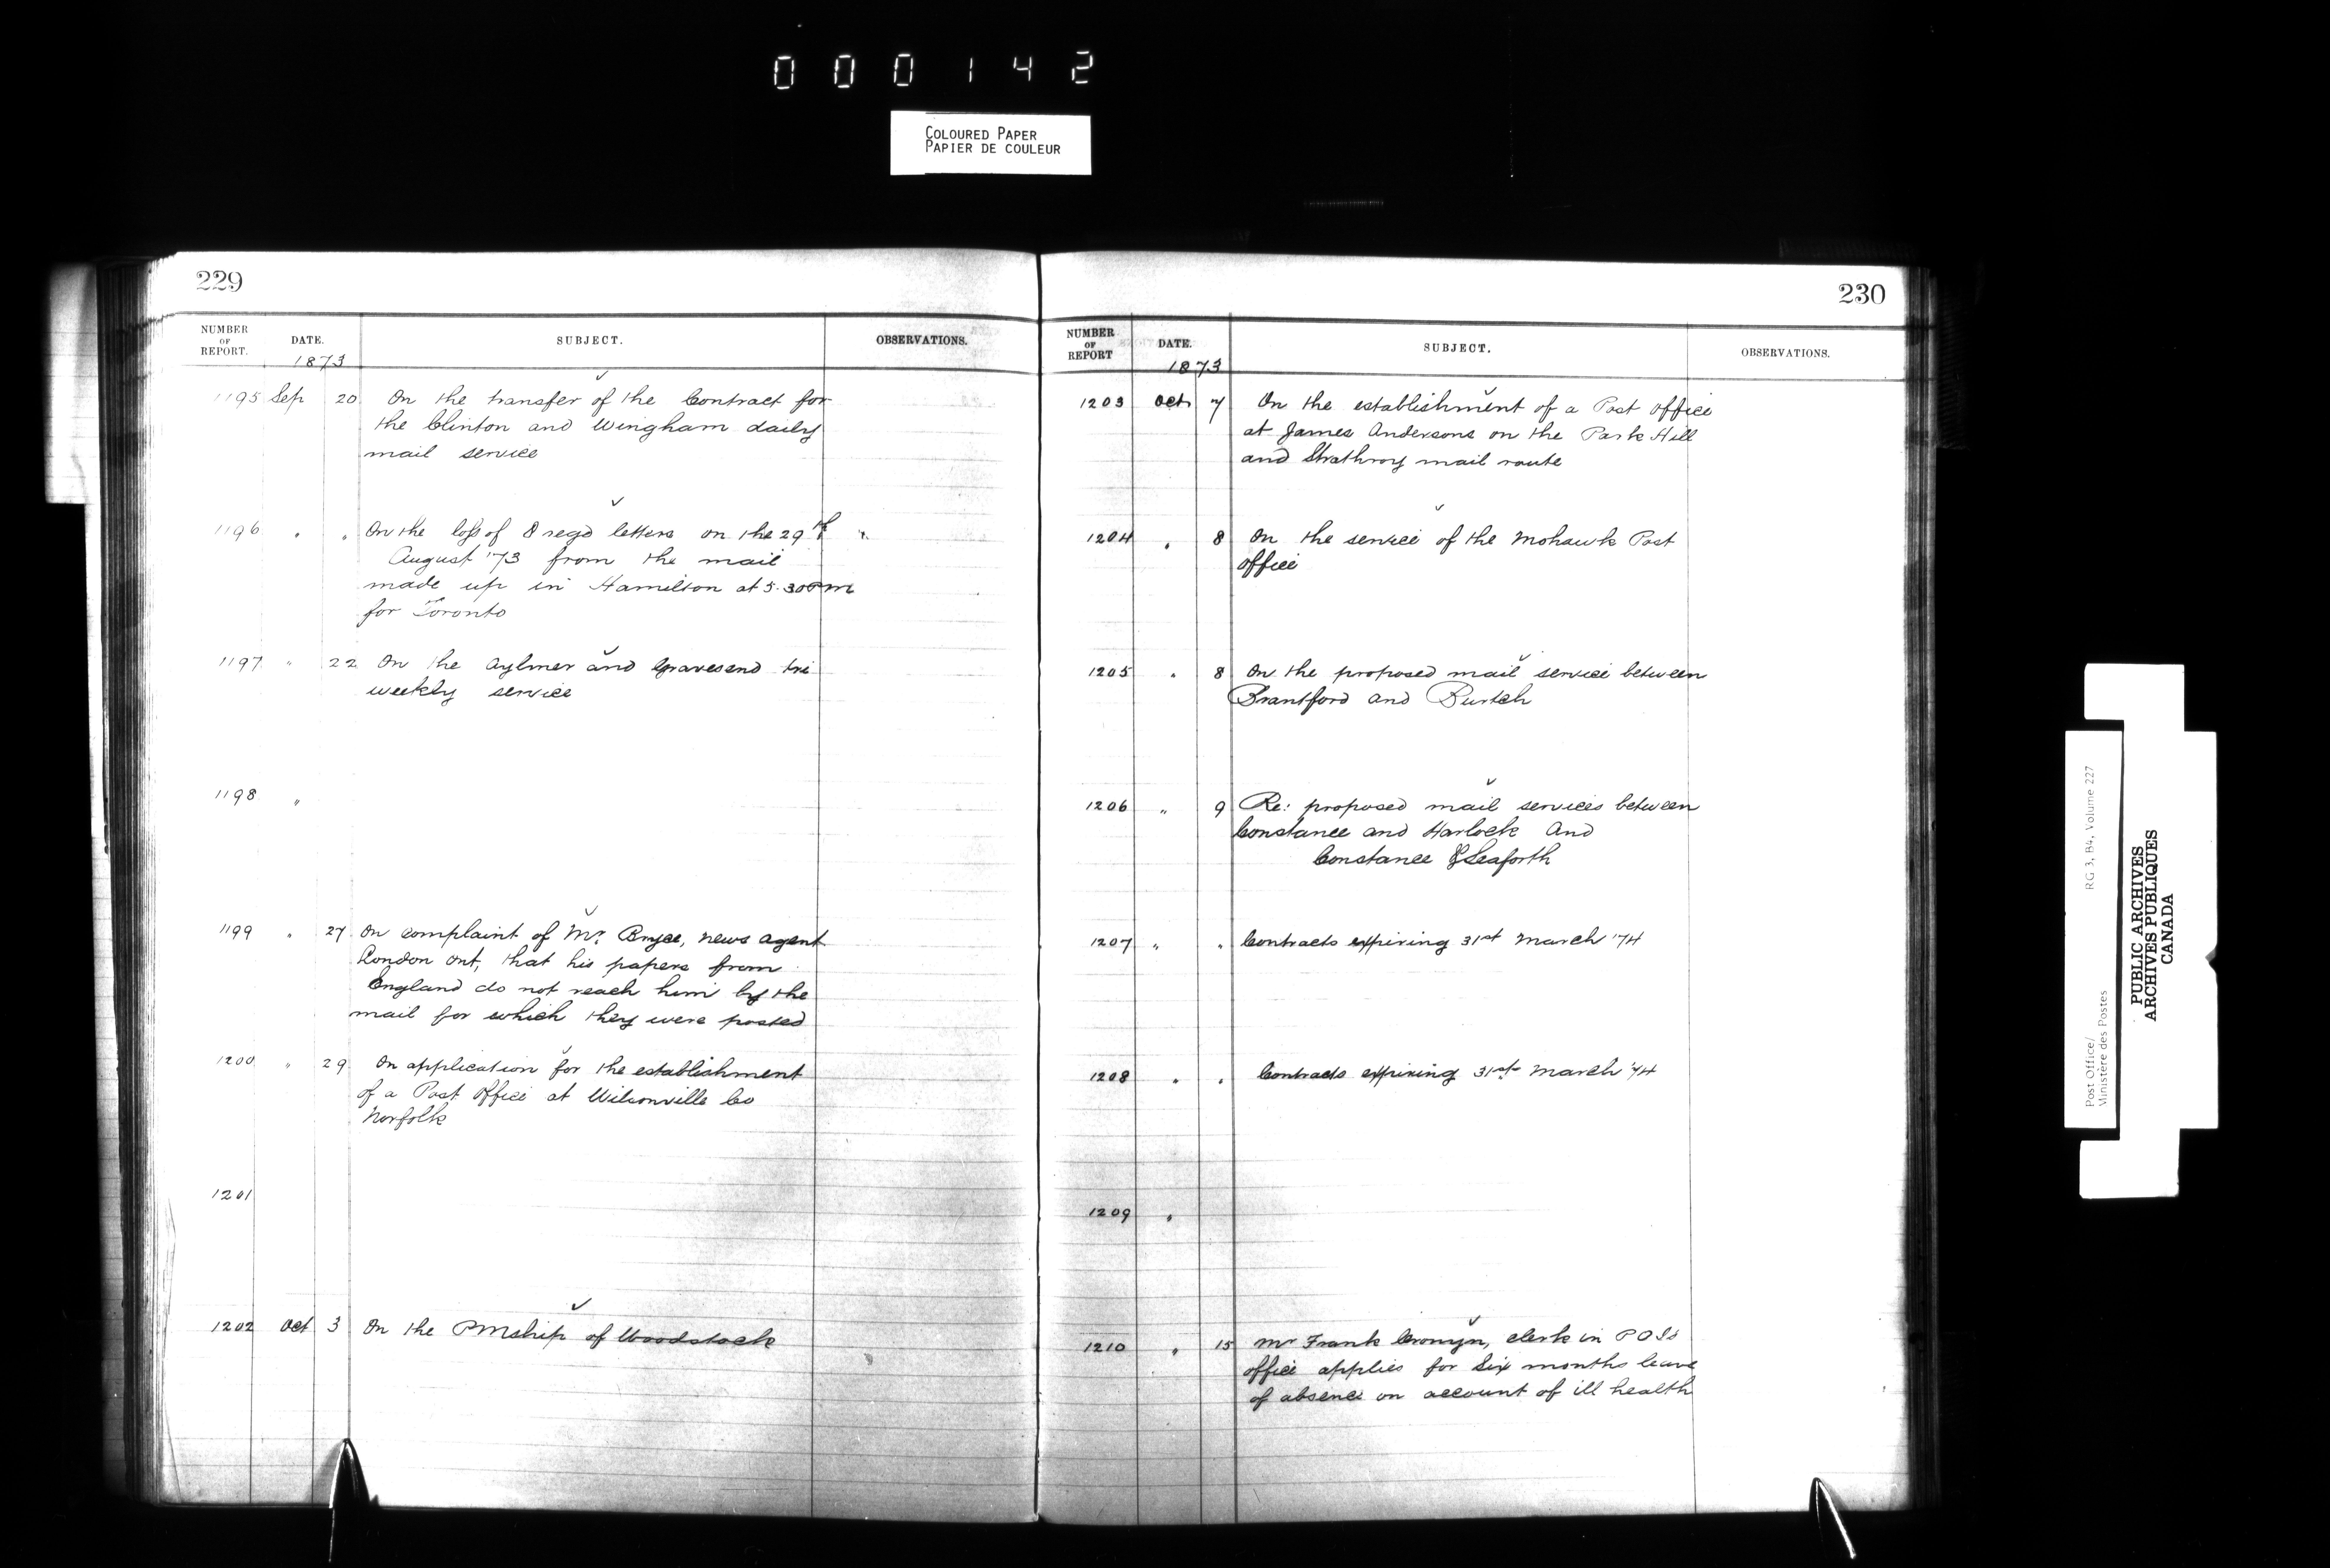 000142
COLOURED PAPER
PAPIER DE COULEUR
229
NUMBER OF REPORT. DATE. SUBJECT. OBSERVATIONS.
1873
1195 Sep 20 On the transfer of the Contract for
the Clinton and Wingham daily
mail service
1196 " " On the loss of 8 regd letters on the 29th "
August '73 from the mail
made up in Hamilton at 5.30 PM
for Toronto
1197 " 22 On the Aylmer and Gravesend tri
weekly service
1198 "
1199 " 27 On complaint of Mr. Bryce, news agent
London Ont, that his papers from
England do not reach him by the
mail for which they were posted
1200 " 29 On application for the establishment
of a Post Office at Wilsonville Co
Norfolk
1201
1202 Oct 3 On the PMship of Woodstock
230
NUMBER OF REPORT DATE. SUBJECT. OBSERVATIONS.
1873
1203 Oct 7 On the establishment of a Post Office
at James Andersons on the Park Hill
and Strathroy mail route
1204 " 8 On the service of the Mohawk Post
Office
1205 " 8 On the proposed mail service between
Brantford and Burtch
1206 " 9 Re: proposed mail services between
Constance and Harlock And
Constance & Seaforth
1207 " " Contracts expiring 31st March '74
1208 " " Contracts expiring 31st March '74
1209 "
1210 " 15 Mr Frank Cronyn, clerk in POIs
office applies for six months leave
of absence on account of ill health
Post Office/ RG 3, B4, Volume 227
Ministère des Postes
PUBLIC ARCHIVES
ARCHIVES PUBLIQUES
CANADA